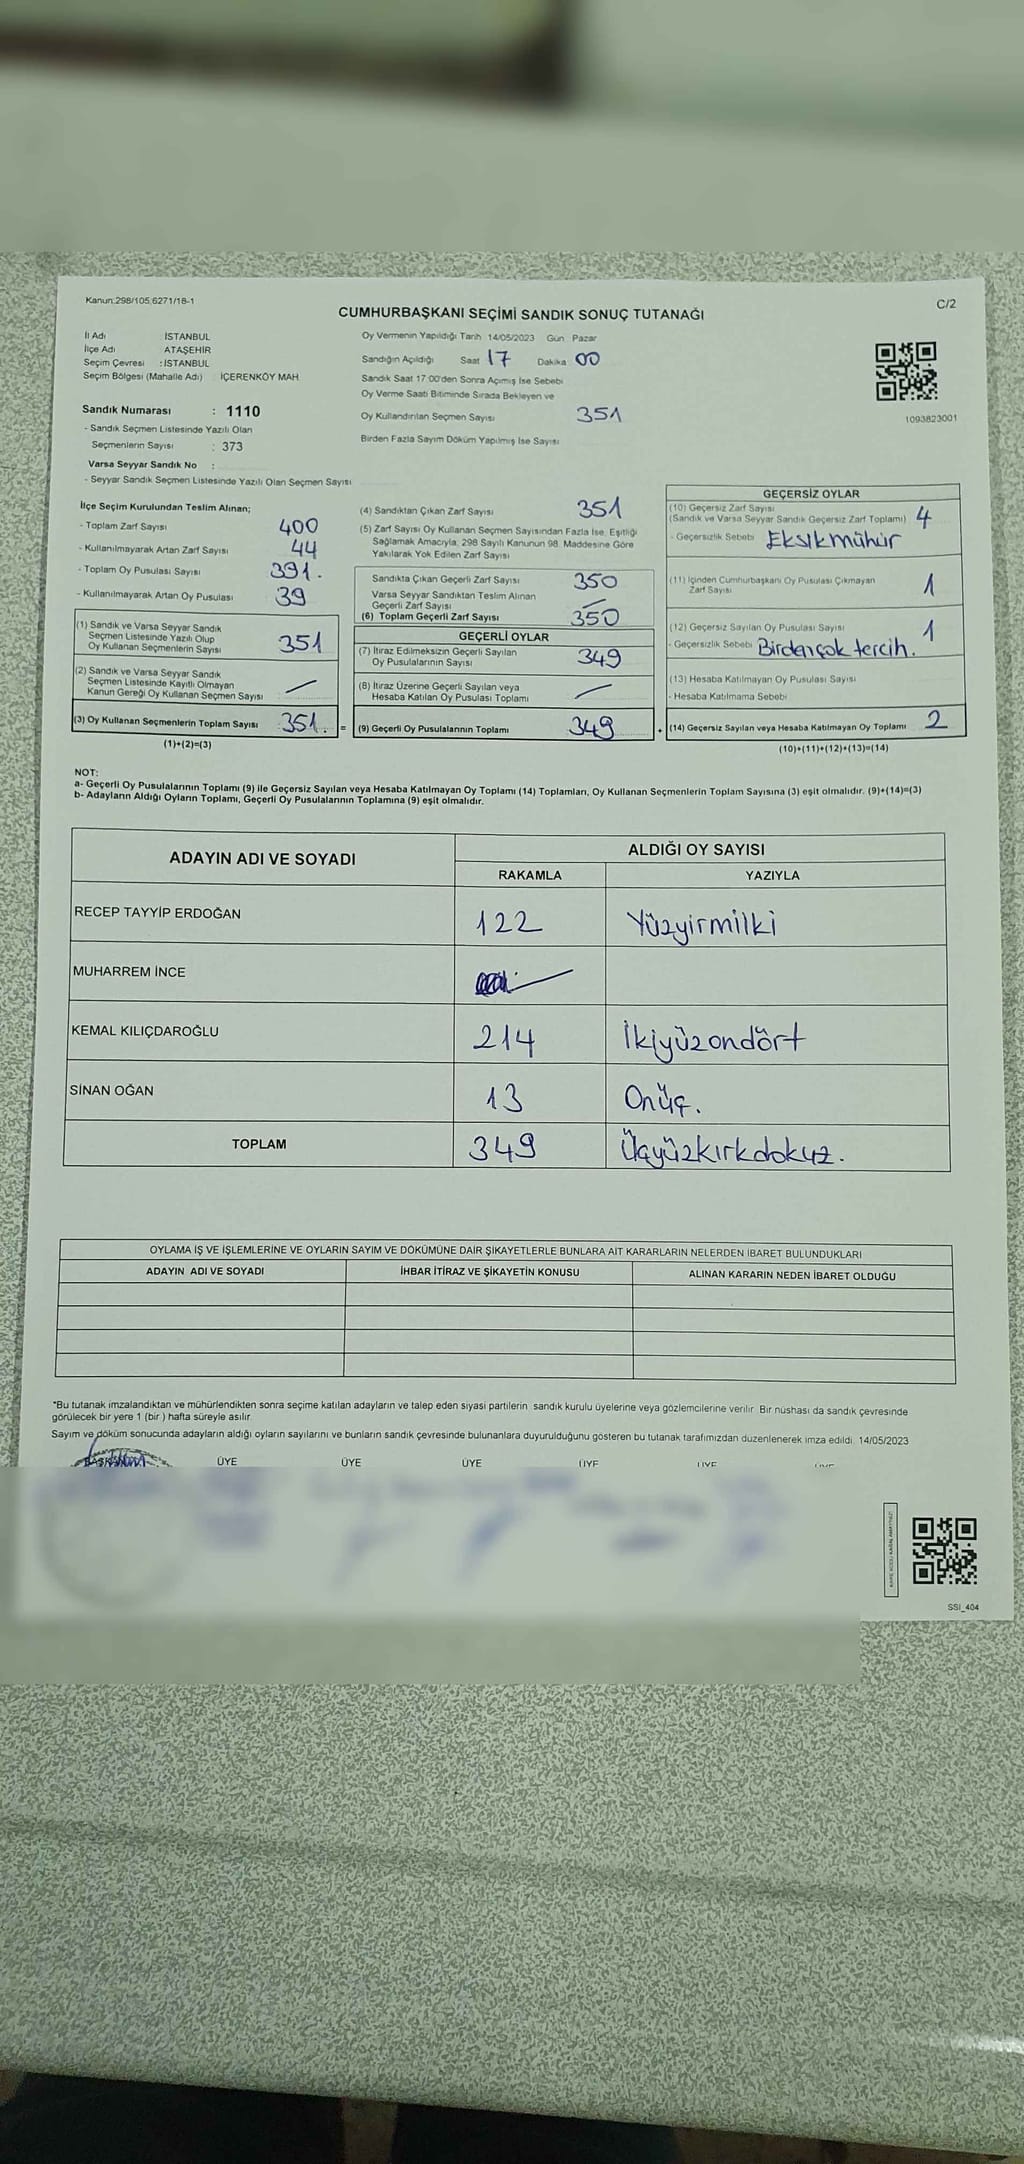 Kanun:298/105,6271/18-1
C/2
CUMHURBAŞKANI SEÇİMİ SANDIK SONUÇ TUTANAĞI
İl Adı İSTANBUL
İlçe Adı ATAŞEHİR
Seçim Çevresi : İSTANBUL
Seçim Bölgesi (Mahalle Adı) İÇERENKÖY MAH.
Sandık Numarası : 1110
- Sandık Seçmen Listesinde Yazılı Olan
Seçmenlerin Sayısı : 373
Varsa Seyyar Sandık No :
- Seyyar Sandık Seçmen Listesinde Yazılı Olan Seçmen Sayısı
Oy Vermenin Yapıldığı Tarih 14/05/2023 Gün Pazar
Sandığın Açıldığı Saat 17 Dakika 00
Sandık Saat 17:00'den Sonra Açımış İse Sebebi
Oy Verme Saati Bitiminde Sırada Bekleyen ve
Oy Kullandırılan Seçmen Sayısı 351
Birden Fazla Sayım Döküm Yapılmış İse Sayısı
1093823001
İlçe Seçim Kurulundan Teslim Alınan;
- Toplam Zarf Sayısı 400
- Kullanılmayarak Artan Zarf Sayısı 44
- Toplam Oy Pusulası Sayısı 391.
- Kullanılmayarak Artan Oy Pusulası 39
(1) Sandık ve Varsa Seyyar Sandık
Seçmen Listesinde Yazılı Olup
Oy Kullanan Seçmenlerin Sayısı 351
(2) Sandık ve Varsa Seyyar Sandık
Seçmen Listesinde Kayıtlı Olmayan
Kanun Gereği Oy Kullanan Seçmen Sayısı —
(3) Oy Kullanan Seçmenlerin Toplam Sayısı 351. =
(1)+(2)=(3)
(4) Sandıktan Çıkan Zarf Sayısı 351
(5) Zarf Sayısı Oy Kullanan Seçmen Sayısından Fazla İse, Eşitliği
Sağlamak Amacıyla, 298 Sayılı Kanunun 98. Maddesine Göre
Yakılarak Yok Edilen Zarf Sayısı
Sandıkta Çıkan Geçerli Zarf Sayısı 350
Varsa Seyyar Sandıktan Teslim Alınan
Geçerli Zarf Sayısı —
(6) Toplam Geçerli Zarf Sayısı 350
GEÇERLİ OYLAR
(7) İtiraz Edilmeksizin Geçerli Sayılan
Oy Pusulalarının Sayısı 349
(8) İtiraz Üzerine Geçerli Sayılan veya
Hesaba Katılan Oy Pusulası Toplamı —
(9) Geçerli Oy Pusulalarının Toplamı 349 +
GEÇERSİZ OYLAR
(10) Geçersiz Zarf Sayısı
(Sandık ve Varsa Seyyar Sandık Geçersiz Zarf Toplamı) 4
- Geçersizlik Sebebi Eksikmühür
(11) İçinden Cumhurbaşkanı Oy Pusulası Çıkmayan
Zarf Sayısı 1
(12) Geçersiz Sayılan Oy Pusulası Sayısı 1
- Geçersizlik Sebebi Birdençok tercih.
(13) Hesaba Katılmayan Oy Pusulası Sayısı
- Hesaba Katılmama Sebebi
(14) Geçersiz Sayılan veya Hesaba Katılmayan Oy Toplamı 2
(10)+(11)+(12)+(13)=(14)
NOT:
a- Geçerli Oy Pusulalarının Toplamı (9) ile Geçersiz Sayılan veya Hesaba Katılmayan Oy Toplamı (14) Toplamları, Oy Kullanan Seçmenlerin Toplam Sayısına (3) eşit olmalıdır. (9)+(14)=(3)
b- Adayların Aldığı Oyların Toplamı, Geçerli Oy Pusulalarının Toplamına (9) eşit olmalıdır.
ADAYIN ADI VE SOYADI ALDIĞI OY SAYISI
RAKAMLA YAZIYLA
RECEP TAYYİP ERDOĞAN 122 Yüzyirmiİki
MUHARREM İNCE —
KEMAL KILIÇDAROĞLU 214 İkiyüzondört
SİNAN OĞAN 13 Onüç.
TOPLAM 349 Üçyüzkırkdokuz.
OYLAMA İŞ VE İŞLEMLERİNE VE OYLARIN SAYIM VE DÖKÜMÜNE DAİR ŞİKAYETLERLE BUNLARA AİT KARARLARIN NELERDEN İBARET BULUNDUKLARI
ADAYIN ADI VE SOYADI İHBAR İTİRAZ VE ŞİKAYETİN KONUSU ALINAN KARARIN NEDEN İBARET OLDUĞU
*Bu tutanak imzalandıktan ve mühürlendikten sonra seçime katılan adayların ve talep eden siyasi partilerin sandık kurulu üyelerine veya gözlemcilerine verilir. Bir nüshası da sandık çevresinde
görülecek bir yere 1 (bir) hafta süreyle asılır.
Sayım ve döküm sonucunda adayların aldığı oyların sayılarını ve bunların sandık çevresinde bulunanlara duyurulduğunu gösteren bu tutanak tarafımızdan düzenlenerek imza edildi. 14/05/2023
BAŞKAN ÜYE ÜYE ÜYE ÜYE ÜYE ÜYE
SSI_404